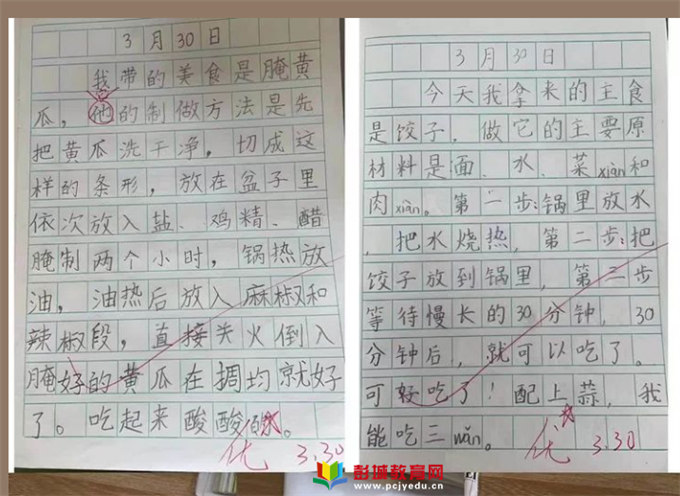 3月30日
我带的美食是腌黄
瓜,他的制做方法是先
把黄瓜洗干净,切成这
样的条形,放在盆子里
依次放入盐、鸡精、醋
腌制两个小时,锅热放
油,油热后放入麻椒和
辣椒段,直接关火倒入
腌好的黄瓜在均就好
了。吃起来酸酸。
优 3.30
3月30日
今天我拿来的主食
是饺子,做它的主要原
材料是面、水、菜xiàn和
肉xiàn。第一步:锅里放水
,把水烧热,第二步:把
饺子放到锅里,第三步
等待慢长的30分钟,30
分钟后,就可以吃了。
可好吃了!配上蒜,我
能吃三wǎn。
优 3.30
彭城教育网
www.pcjyedu.cn